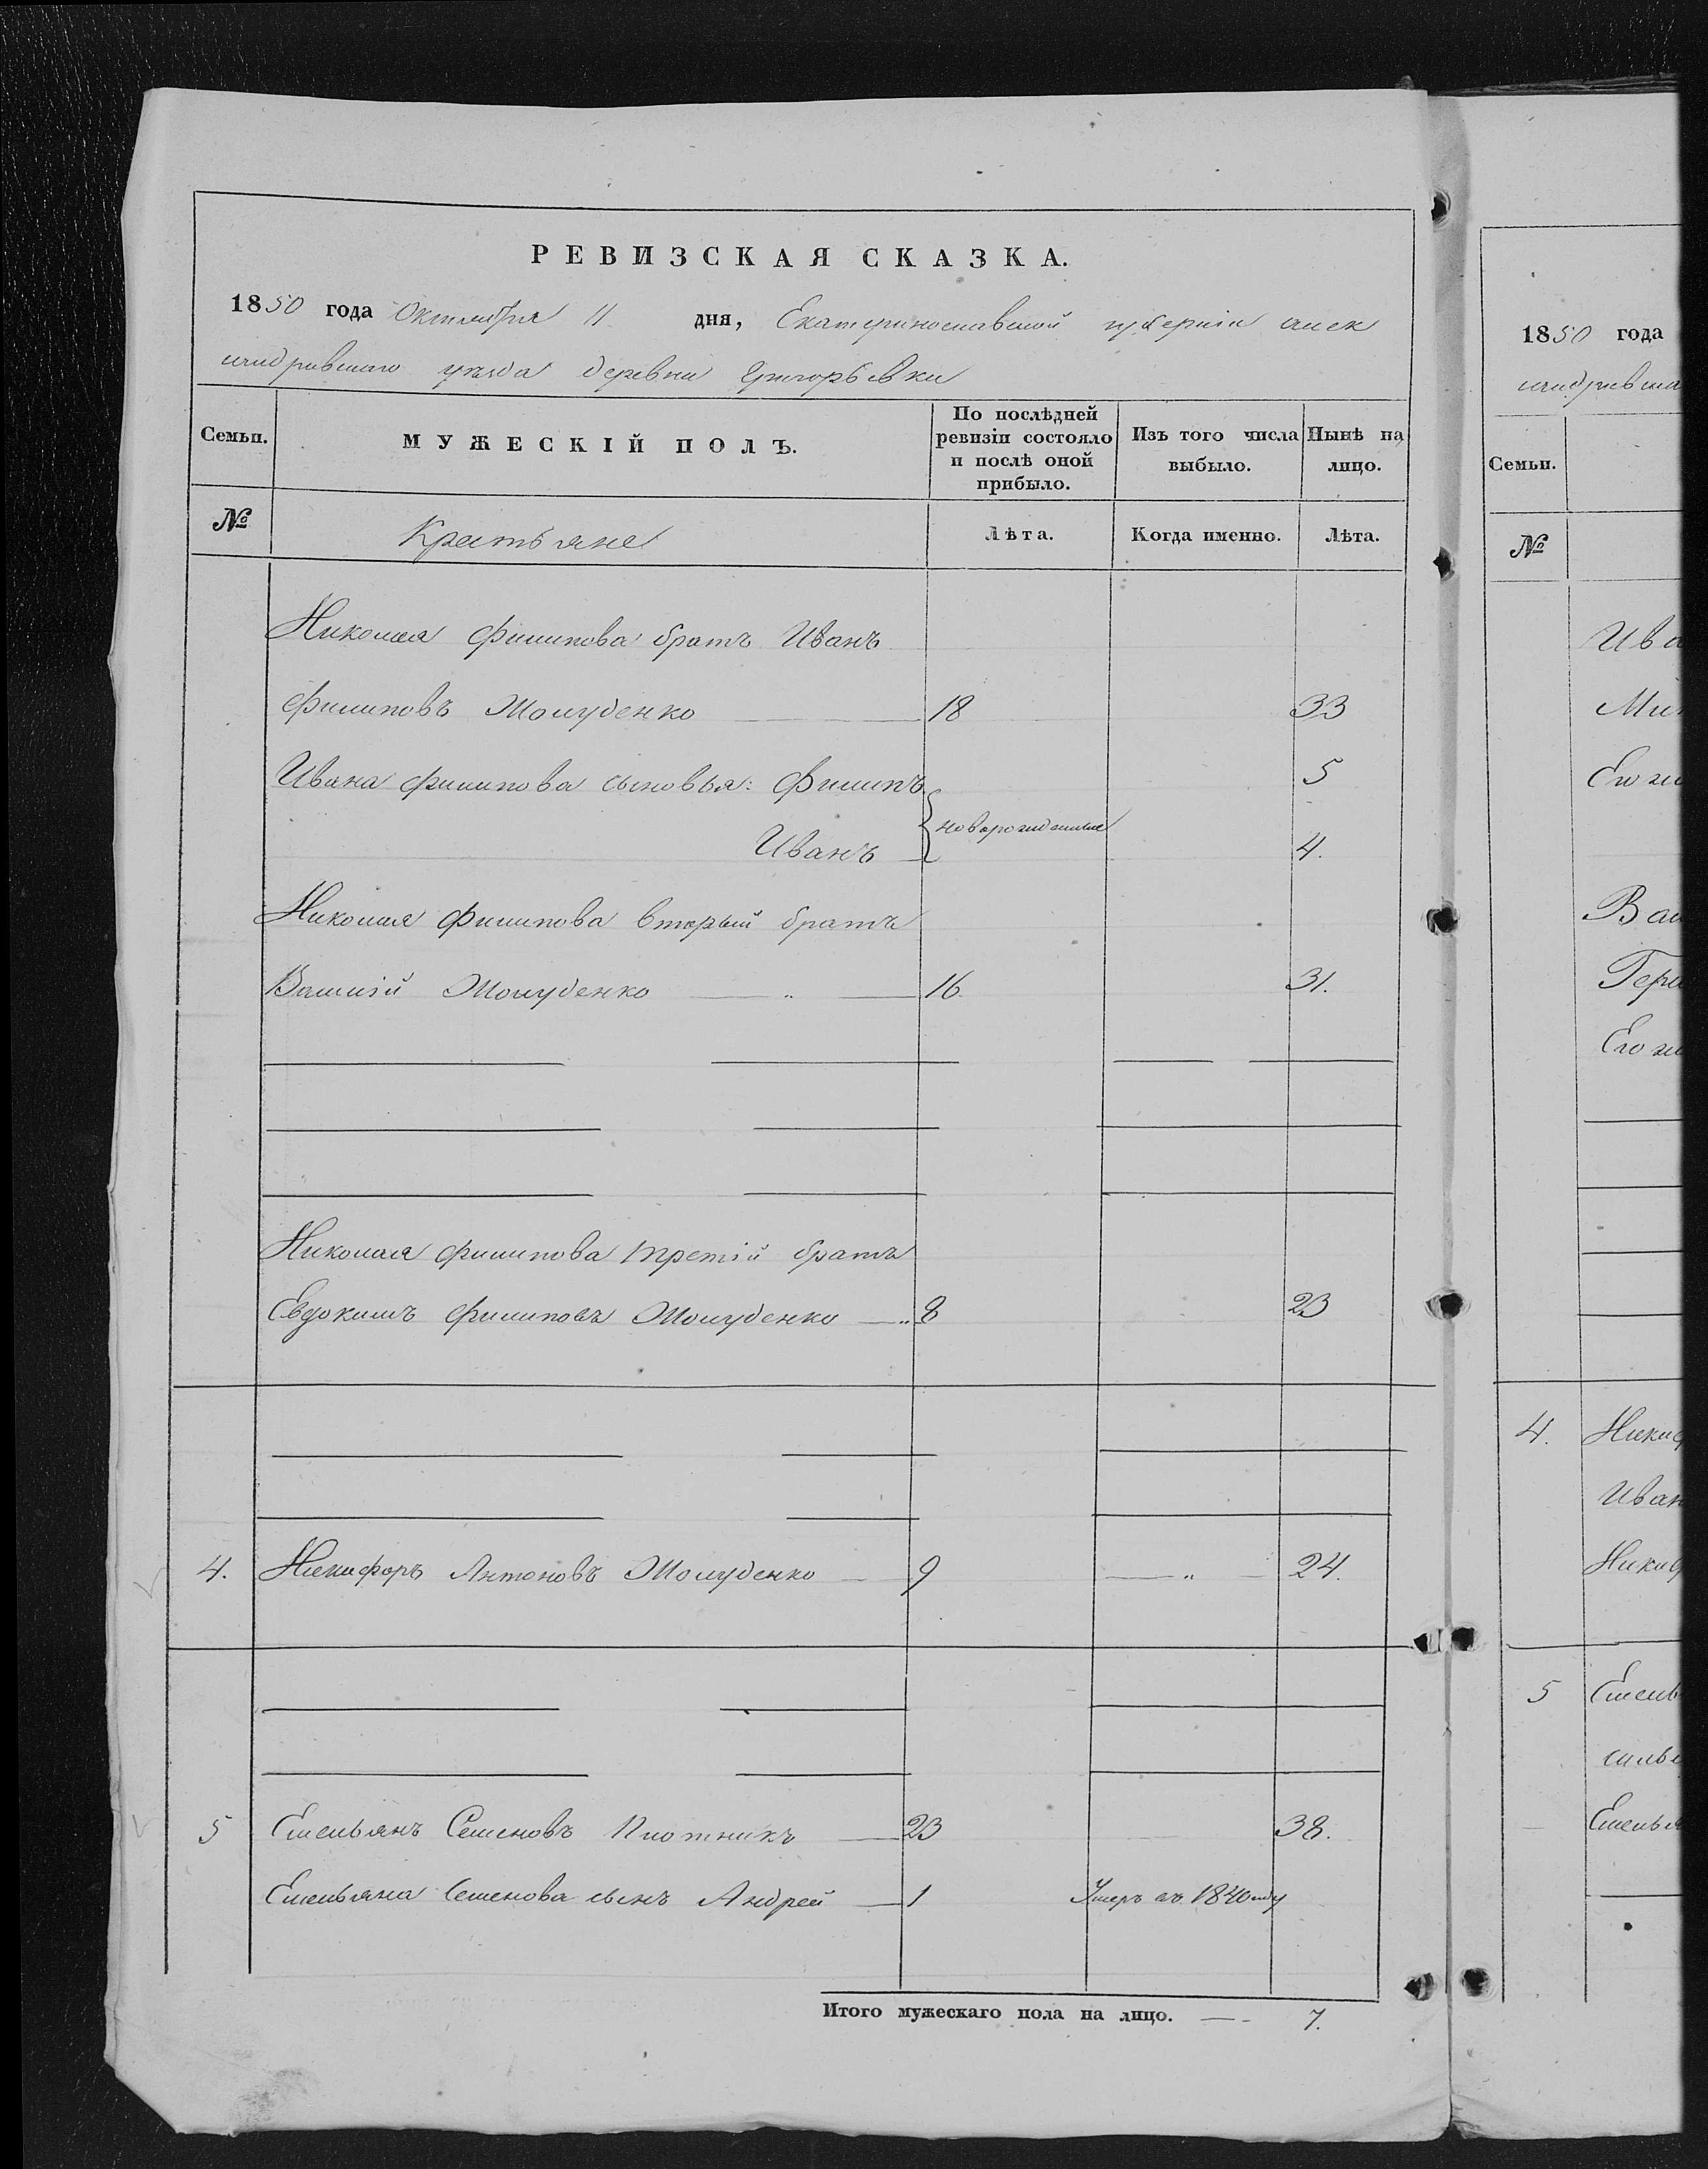 РЕВИЗСКАЯ СКАЗКА.
1850 года Октября 11 дня, Екатеринославской губерніи алек
сандровскаго уѣзда деревни Григорьевки
Семьи.
МУЖЕСКІЙ ПОЛЪ.
По послѣдней ревизіи состояло и послѣ оной прибыло.
Изъ того числа выбыло.
Нынѣ на лицо.
№
Крестьяне
Лѣта.
Когда именно.
Лѣта.
Николая Филипова братъ Иванъ
Филиповъ Шолуденко 18 33
Ивана Филипова сыновья: Филипъ 5
новорожденные
Иванъ 4.
Николая Филипова вторый братъ
Василій Шолуденко 16 31.
Николая Филипова третій братъ
Евдокимъ Филиповъ Шолуденко 8 23
4. Никифоръ Антоновъ Шолуденко 9 " 24.
5 Емельянъ Семеновъ Плотникъ 23 38.
Емельяна Семенова сынъ Андрей 1 Умеръ въ 1840 году
Итого мужескаго пола на лицо. 7.
1850 года
сандровска
Семьи.
№
Ива
Его же
Вас
Гера
Его же
4. Никиф
Иван
Никиф
5 Емель
Емелья